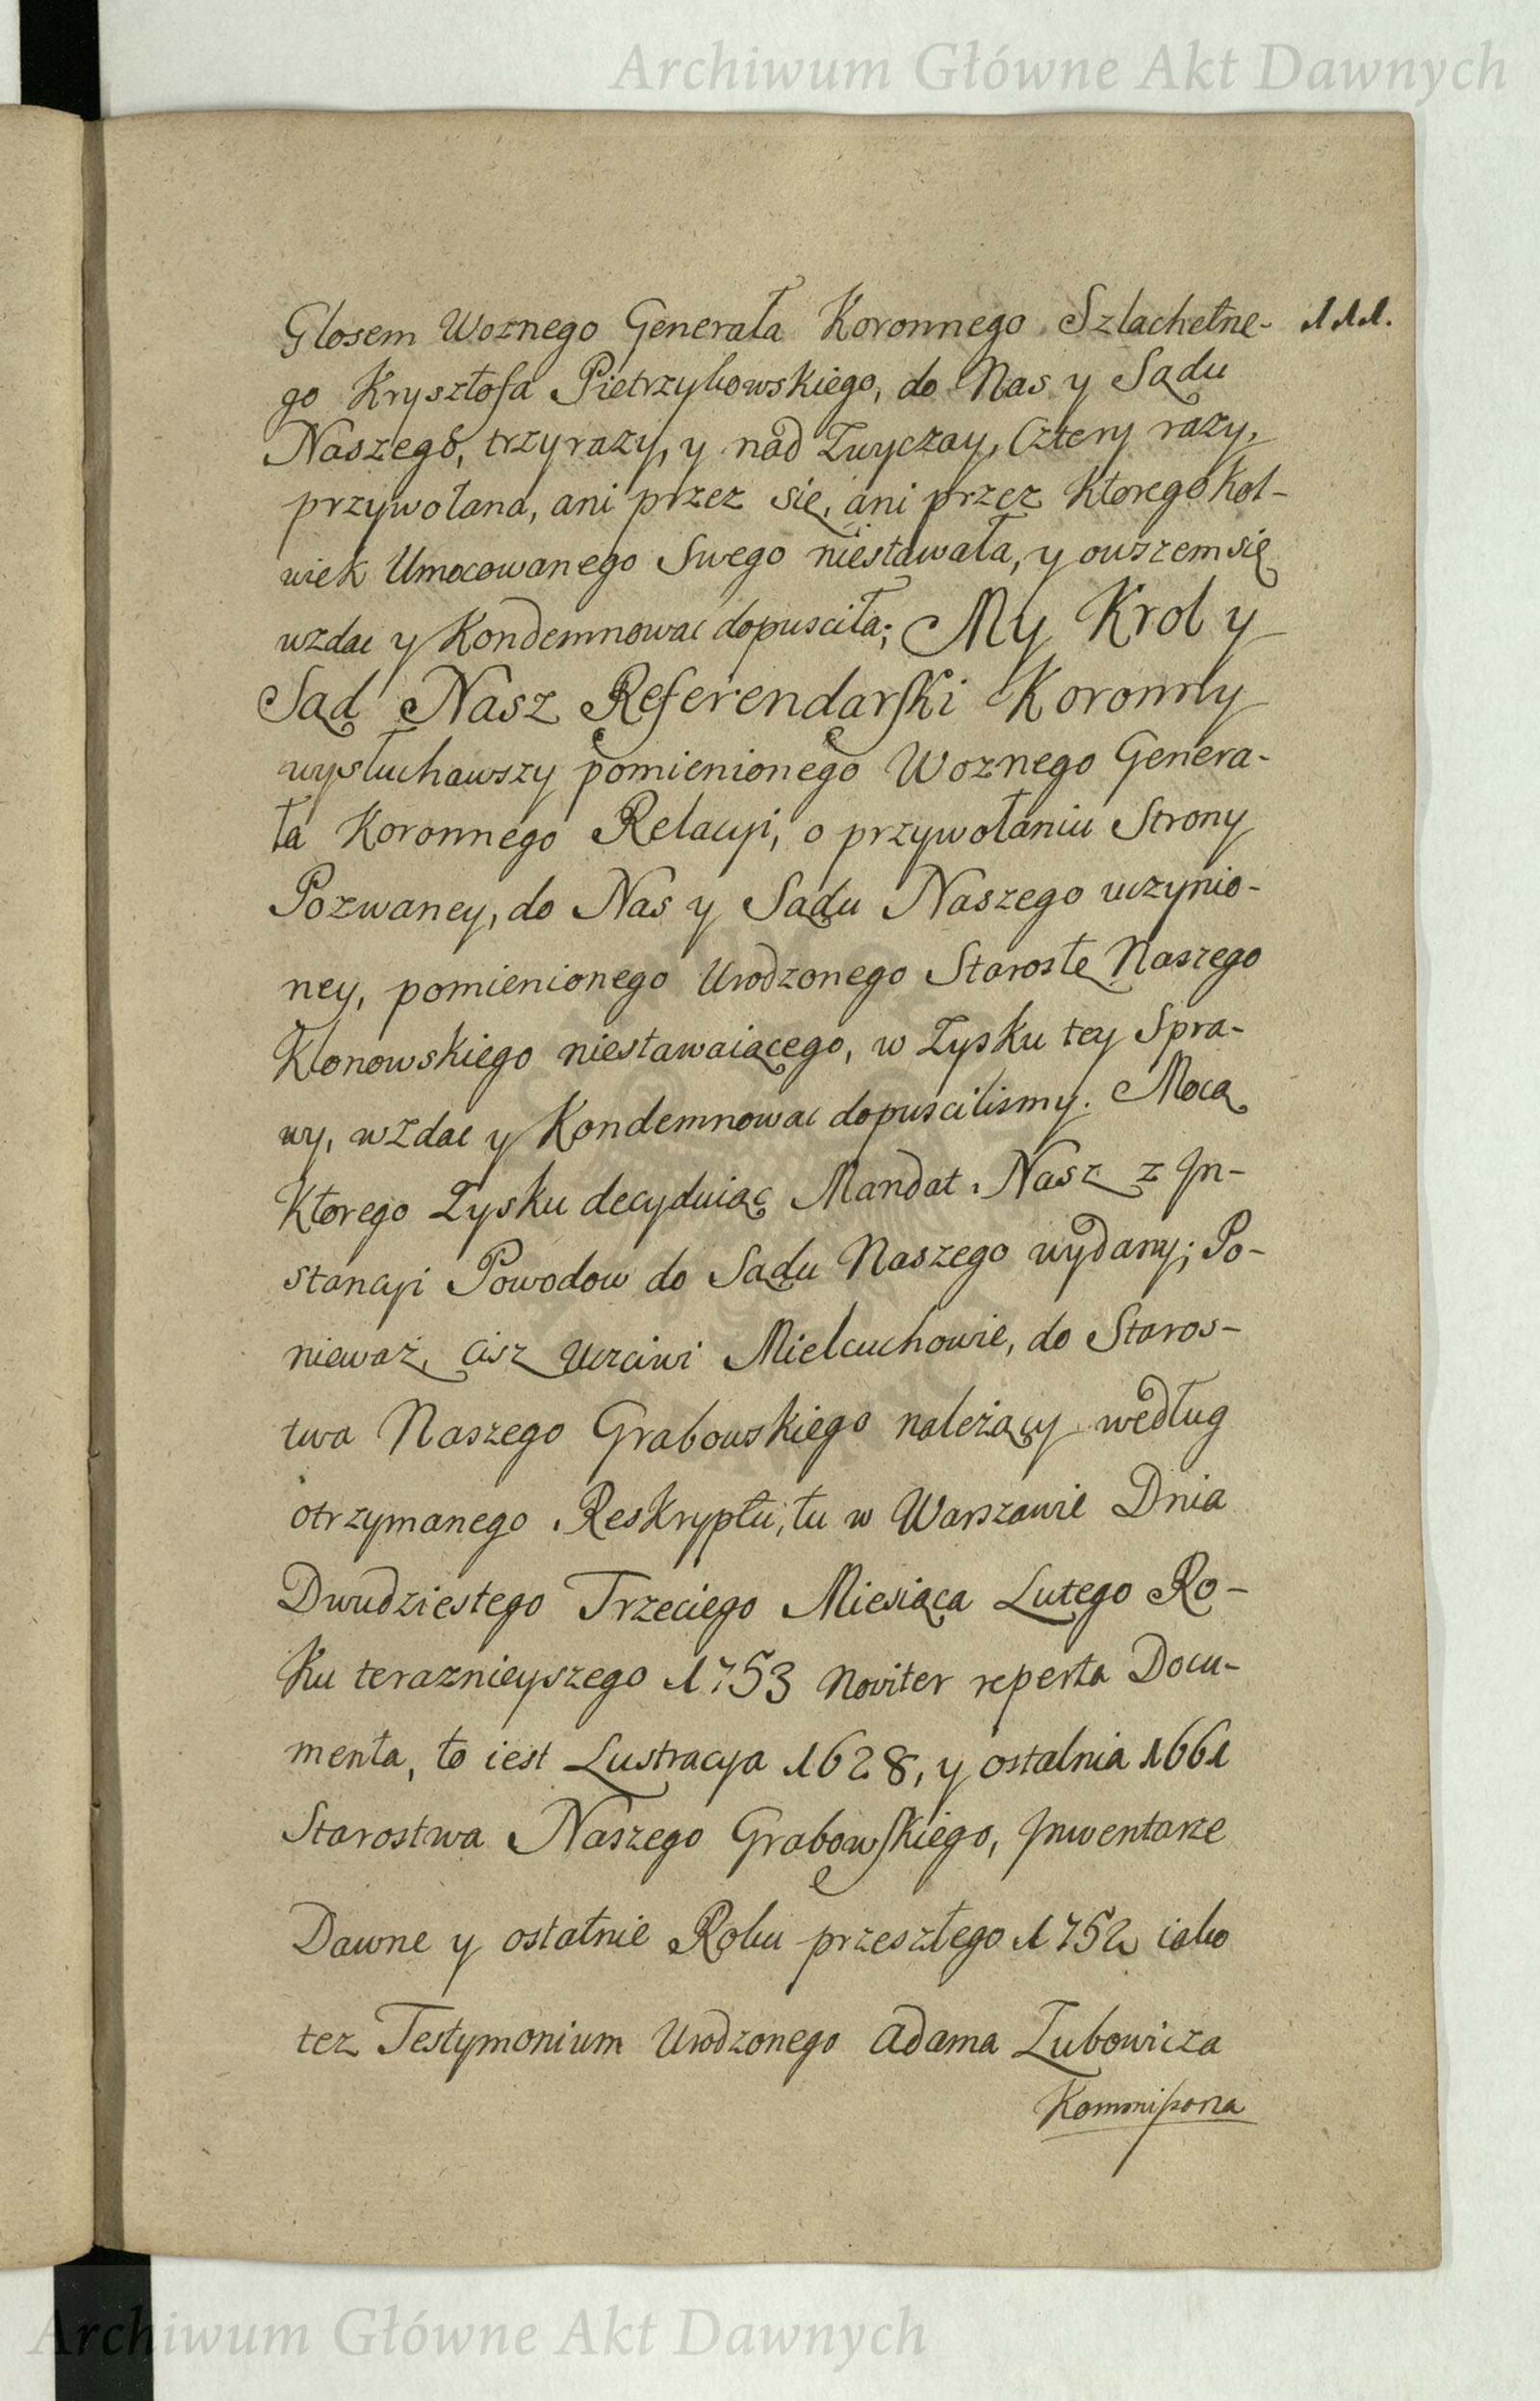 Archiwum Główne Akt Dawnych
111.
Głosem Woznego Generała Koronnego Szlachetne-
go Krysztofa Pietrzykowskiego, do Nas y Sądu
Naszego, trzy razy, y nad Zwyczay, Cztery razy,
przywołana, ani przez się, ani przez Ktoregokol-
wiek Umocowanego Swego niestawała, y owszem się
wzdac y Kondemnowac dopusciła; My Krol y
Sąd Nasz Referendarski Koronny
wysłuchawszy pomienionego Woznego Genera-
ła Koronnego Relacyi, o przywołaniu Strony
Pozwaney, do Nas y Sądu Naszego uczynio-
ney, pomienionego Urodzonego Starostę Naszego
Klonowskiego niestawaiącego, w Zysku tey Spra-
wy, wzdac y Kondemnowac dopuscilismy. Mocą
Ktorego Zysku decyduiąc Mandat Nasz z In-
stancyi Powodow do Sądu Naszego wydany; Po-
nieważ, cisz Uczciwi Mielcuchowie, do Staros-
twa Naszego Grabowskiego należący według
otrzymanego Reskryptu, tu w Warszawie Dnia
Dwudziestego Trzeciego Miesiąca Lutego Ro-
ku teraznieyszego 1753 Noviter reperta Docu-
menta, to iest Lustracya 1628, y ostatnia 1661
Starostwa Naszego Grabowskiego, Inwentarze
Dawne y ostatnie Roku przeszłego 1752 iako
tez Testymonium Urodzonego Adama Zubowicza
Kommissorza
Archiwum Główne Akt Dawnych